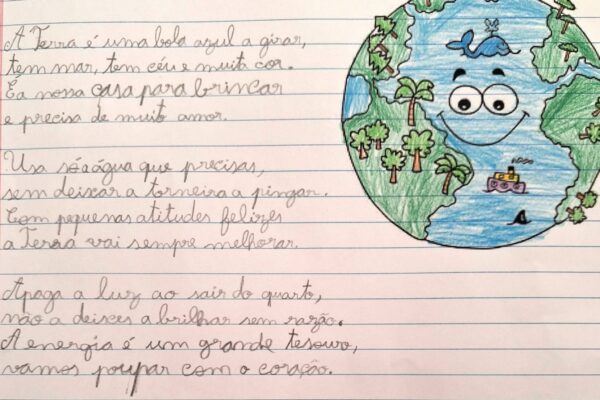 A Terra é uma bola azul a girar,
tem mar, tem céu e muita cor.
É a nossa casa para brincar
e precisa de muito amor.
Usa só a água que precisas,
sem deixar a torneira a pingar.
Com pequenas atitudes felizes
a Terra vai sempre melhorar.
Apaga a luz ao sair do quarto,
não a deixes a brilhar sem razão.
A energia é um grande tesouro,
vamos poupar com o coração.